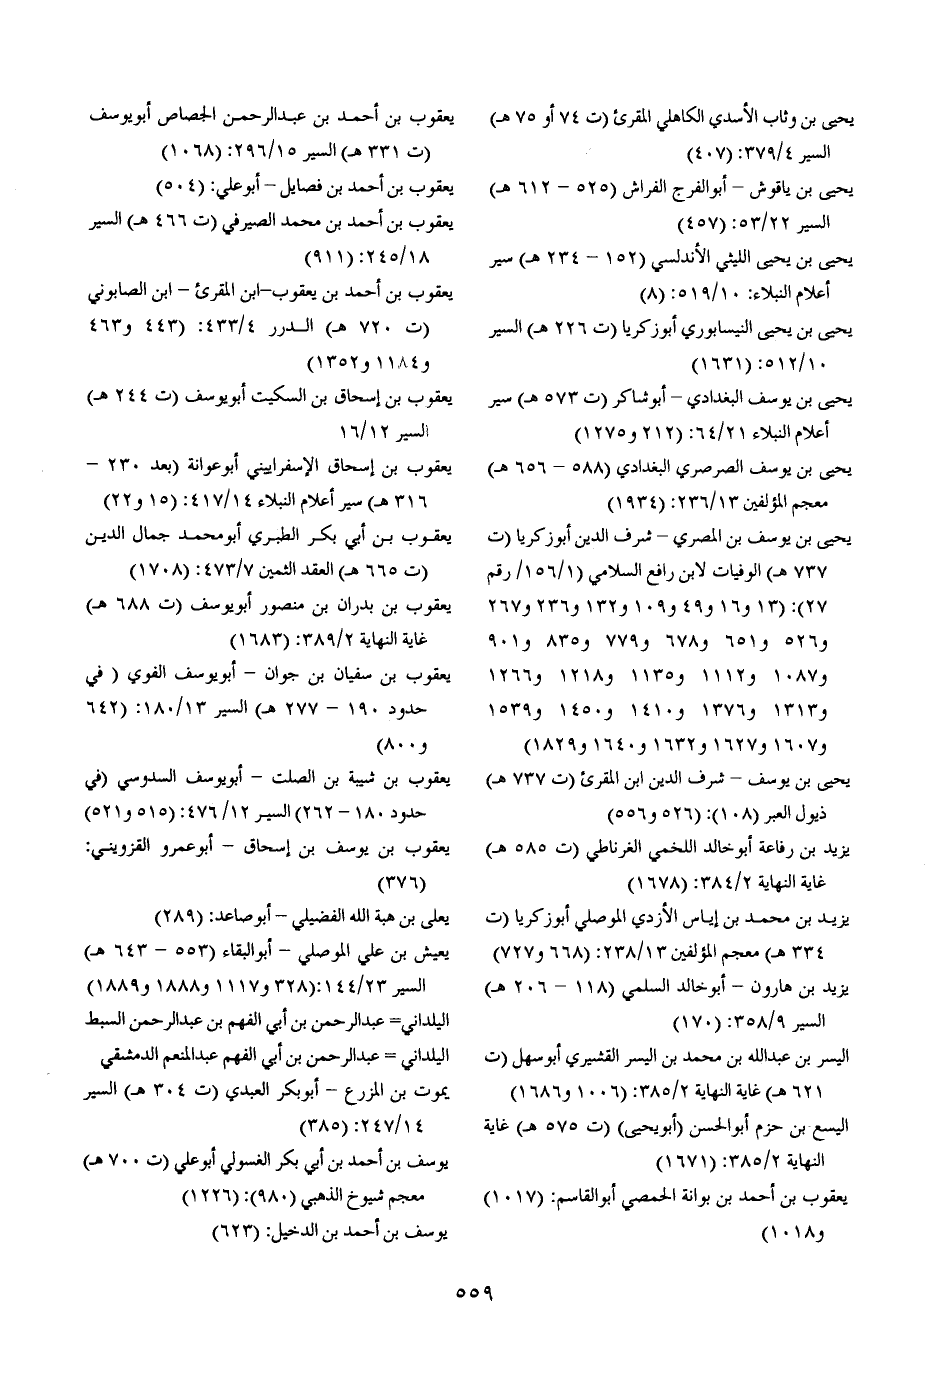 يحيى بن وثاب الأسدي الكاهلي المقرئ (ت ٧٤ أو ٧٥ هـ)
السير ٣٧٩/٤: (٤٠٧)
يحيى بن ياقوش – أبوالفرج الفراش (٥٢٥ – ٦١٢ هـ)
السير ٥٣/٢٢: (٤٥٧)
يحيى بن يحيى الليثي الأندلسي (١٥٢ – ٢٣٤ هـ) سير
أعلام النبلاء: ٥١٩/١٠: (٨)
يحيى بن يحيى النيسابوري أبوزكريا (ت ٢٢٦ هـ) السير
٥١٢/١٠: (١٦٣١)
يحيى بن يوسف البغدادي – أبوشاكر (ت ٥٧٣ هـ) سير
أعلام النبلاء ٦٤/٢١: (٢١٢ و١٢٧٥)
يحيى بن يوسف الصرصري البغدادي (٥٨٨ – ٦٥٦ هـ)
معجم المؤلفين ٢٣٦/١٣: (١٩٣٤)
يحيى بن يوسف بن المصري – شرف الدين أبوزكريا (ت
٧٣٧ هـ) الوفيات لابن رافع السلامي (١٥٦/١/ رقم
٢٧): (١٣ و١٦ و٤٩ و١٠٩ و١٣٢ و٢٣٦ و٢٦٧
و٥٢٦ و٦٥١ و٦٧٨ و٧٧٩ و٨٣٥ و٩٠١
و١٠٨٧ و١١١٢ و١١٣٥ و١٢١٨ و١٢٦٦
و١٣١٣ و١٣٧٦ و١٤١٠ و١٤٥٠ و١٥٣٩
و١٦٠٧ و١٦٢٧ و١٦٣٢ و١٦٤٠ و١٨٢٩)
يحيى بن يوسف – شرف الدين ابن المقرئ (ت ٧٣٧ هـ)
ذيول العبر (١٠٨): (٥٢٦ و٥٥٦)
يزيد بن رفاعة أبوخالد اللخمي الغرناطي (ت ٥٨٥ هـ)
غاية النهاية ٣٨٤/٢: (١٦٧٨)
يزيد بن محمد بن إياس الأزدي الموصلي أبوزكريا (ت
٣٣٤ هـ) معجم المؤلفين ٢٣٨/١٣: (٦٦٨ و٧٢٧)
يزيد بن هارون – أبوخالد السلمي (١١٨ – ٢٠٦ هـ)
السير ٣٥٨/٩: (١٧٠)
اليسر بن عبدالله بن محمد بن اليسر القشيري أبوسهل (ت
٦٢١ هـ) غاية النهاية ٣٨٥/٢: (١٠٠٦ و١٦٨٦)
اليسع بن حزم أبوالحسن (أبويحيى) (ت ٥٧٥ هـ) غاية
النهاية ٣٨٥/٢: (١٦٧١)
يعقوب بن أحمد بن بوانة الحمصي أبوالقاسم: (١٠١٧)
و١٠١٨)
يعقوب بن أحمد بن عبدالرحمن الجصاص أبويوسف
(ت ٣٣١ هـ) السير ٢٩٦/١٥: (١٠٦٨)
يعقوب بن أحمد بن فصايل – أبوعلي: (٥٠٤)
يعقوب بن أحمد بن محمد الصيرفي (ت ٤٦٦ هـ) السير
٢٤٥/١٨: (٩١١)
يعقوب بن أحمد بن يعقوب–ابن المقرئ – ابن الصابوني
(ت ٧٢٠ هـ) الدرر ٤٣٣/٤: (٤٤٣ و٤٦٣
و١١٨٤ و١٣٥٢)
يعقوب بن إسحاق بن السكيت أبويوسف (ت ٢٤٤ هـ)
السير ١٦/١٢
يعقوب بن إسحاق الإسفراييني أبوعوانة (بعد ٢٣٠ –
٣١٦ هـ) سير أعلام النبلاء ٤١٧/١٤: (١٥ و٢٢)
يعقوب بن أبي بكر الطبري أبومحمد جمال الدين
(ت ٦٦٥ هـ) العقد الثمين ٤٧٣/٧: (١٧٠٨)
يعقوب بن بدران بن منصور أبويوسف (ت ٦٨٨ هـ)
غاية النهاية ٣٨٩/٢: (١٦٨٣)
يعقوب بن سفيان بن جوان – أبويوسف الفوي ( في
حدود ١٩٠ – ٢٧٧ هـ) السير ١٨٠/١٣: (٦٤٢
و٨٠٠)
يعقوب بن شيبة بن الصلت – أبويوسف السدوسي (في
حدود ١٨٠ –٢٦٢) السير ٤٧٦/١٢: (٥١٥ و٥٢١)
يعقوب بن يوسف بن إسحاق – أبوعمرو القزويني:
(٣٧٦)
يعلى بن هبة الله الفضيلي – أبوصاعد: (٢٨٩)
يعيش بن علي الموصلي – أبوالبقاء (٥٥٣ – ٦٤٣ هـ)
السير ١٤٤/٢٣:(٣٢٨ و١١١٧ و١٨٨٨ و١٨٨٩)
اليلداني= عبدالرحمن بن أبي الفهم بن عبدالرحمن السبط
اليلداني = عبدالرحمن بن أبي الفهم عبدالمنعم الدمشقي
يموت بن المزرع – أبوبكر العبدي (ت ٣٠٤ هـ) السير
٢٤٧/١٤: (٣٨٥)
يوسف بن أحمد بن أبي بكر الغسولي أبوعلي (ت ٧٠٠ هـ)
معجم شيوخ الذهبي (٩٨٠): (١٢٢٦)
يوسف بن أحمد بن الدخيل: (٦٢٣)
٥٥٩